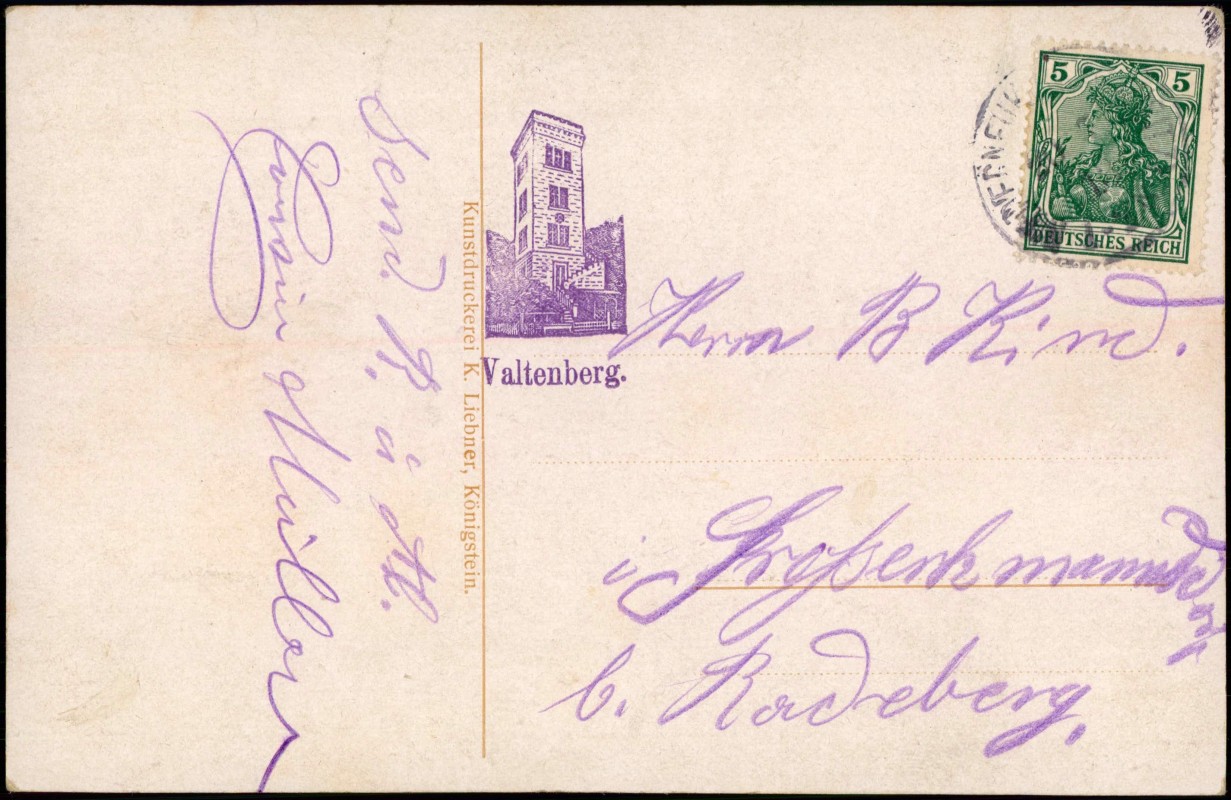 Send. P. u. M.
Müller
Kunstdruckerei K. Liebner, Königstein.
Valtenberg.
5 5
DEUTSCHES REICH
Herrn B Kind.
i Großerkmannsdorf
b. Radeberg.